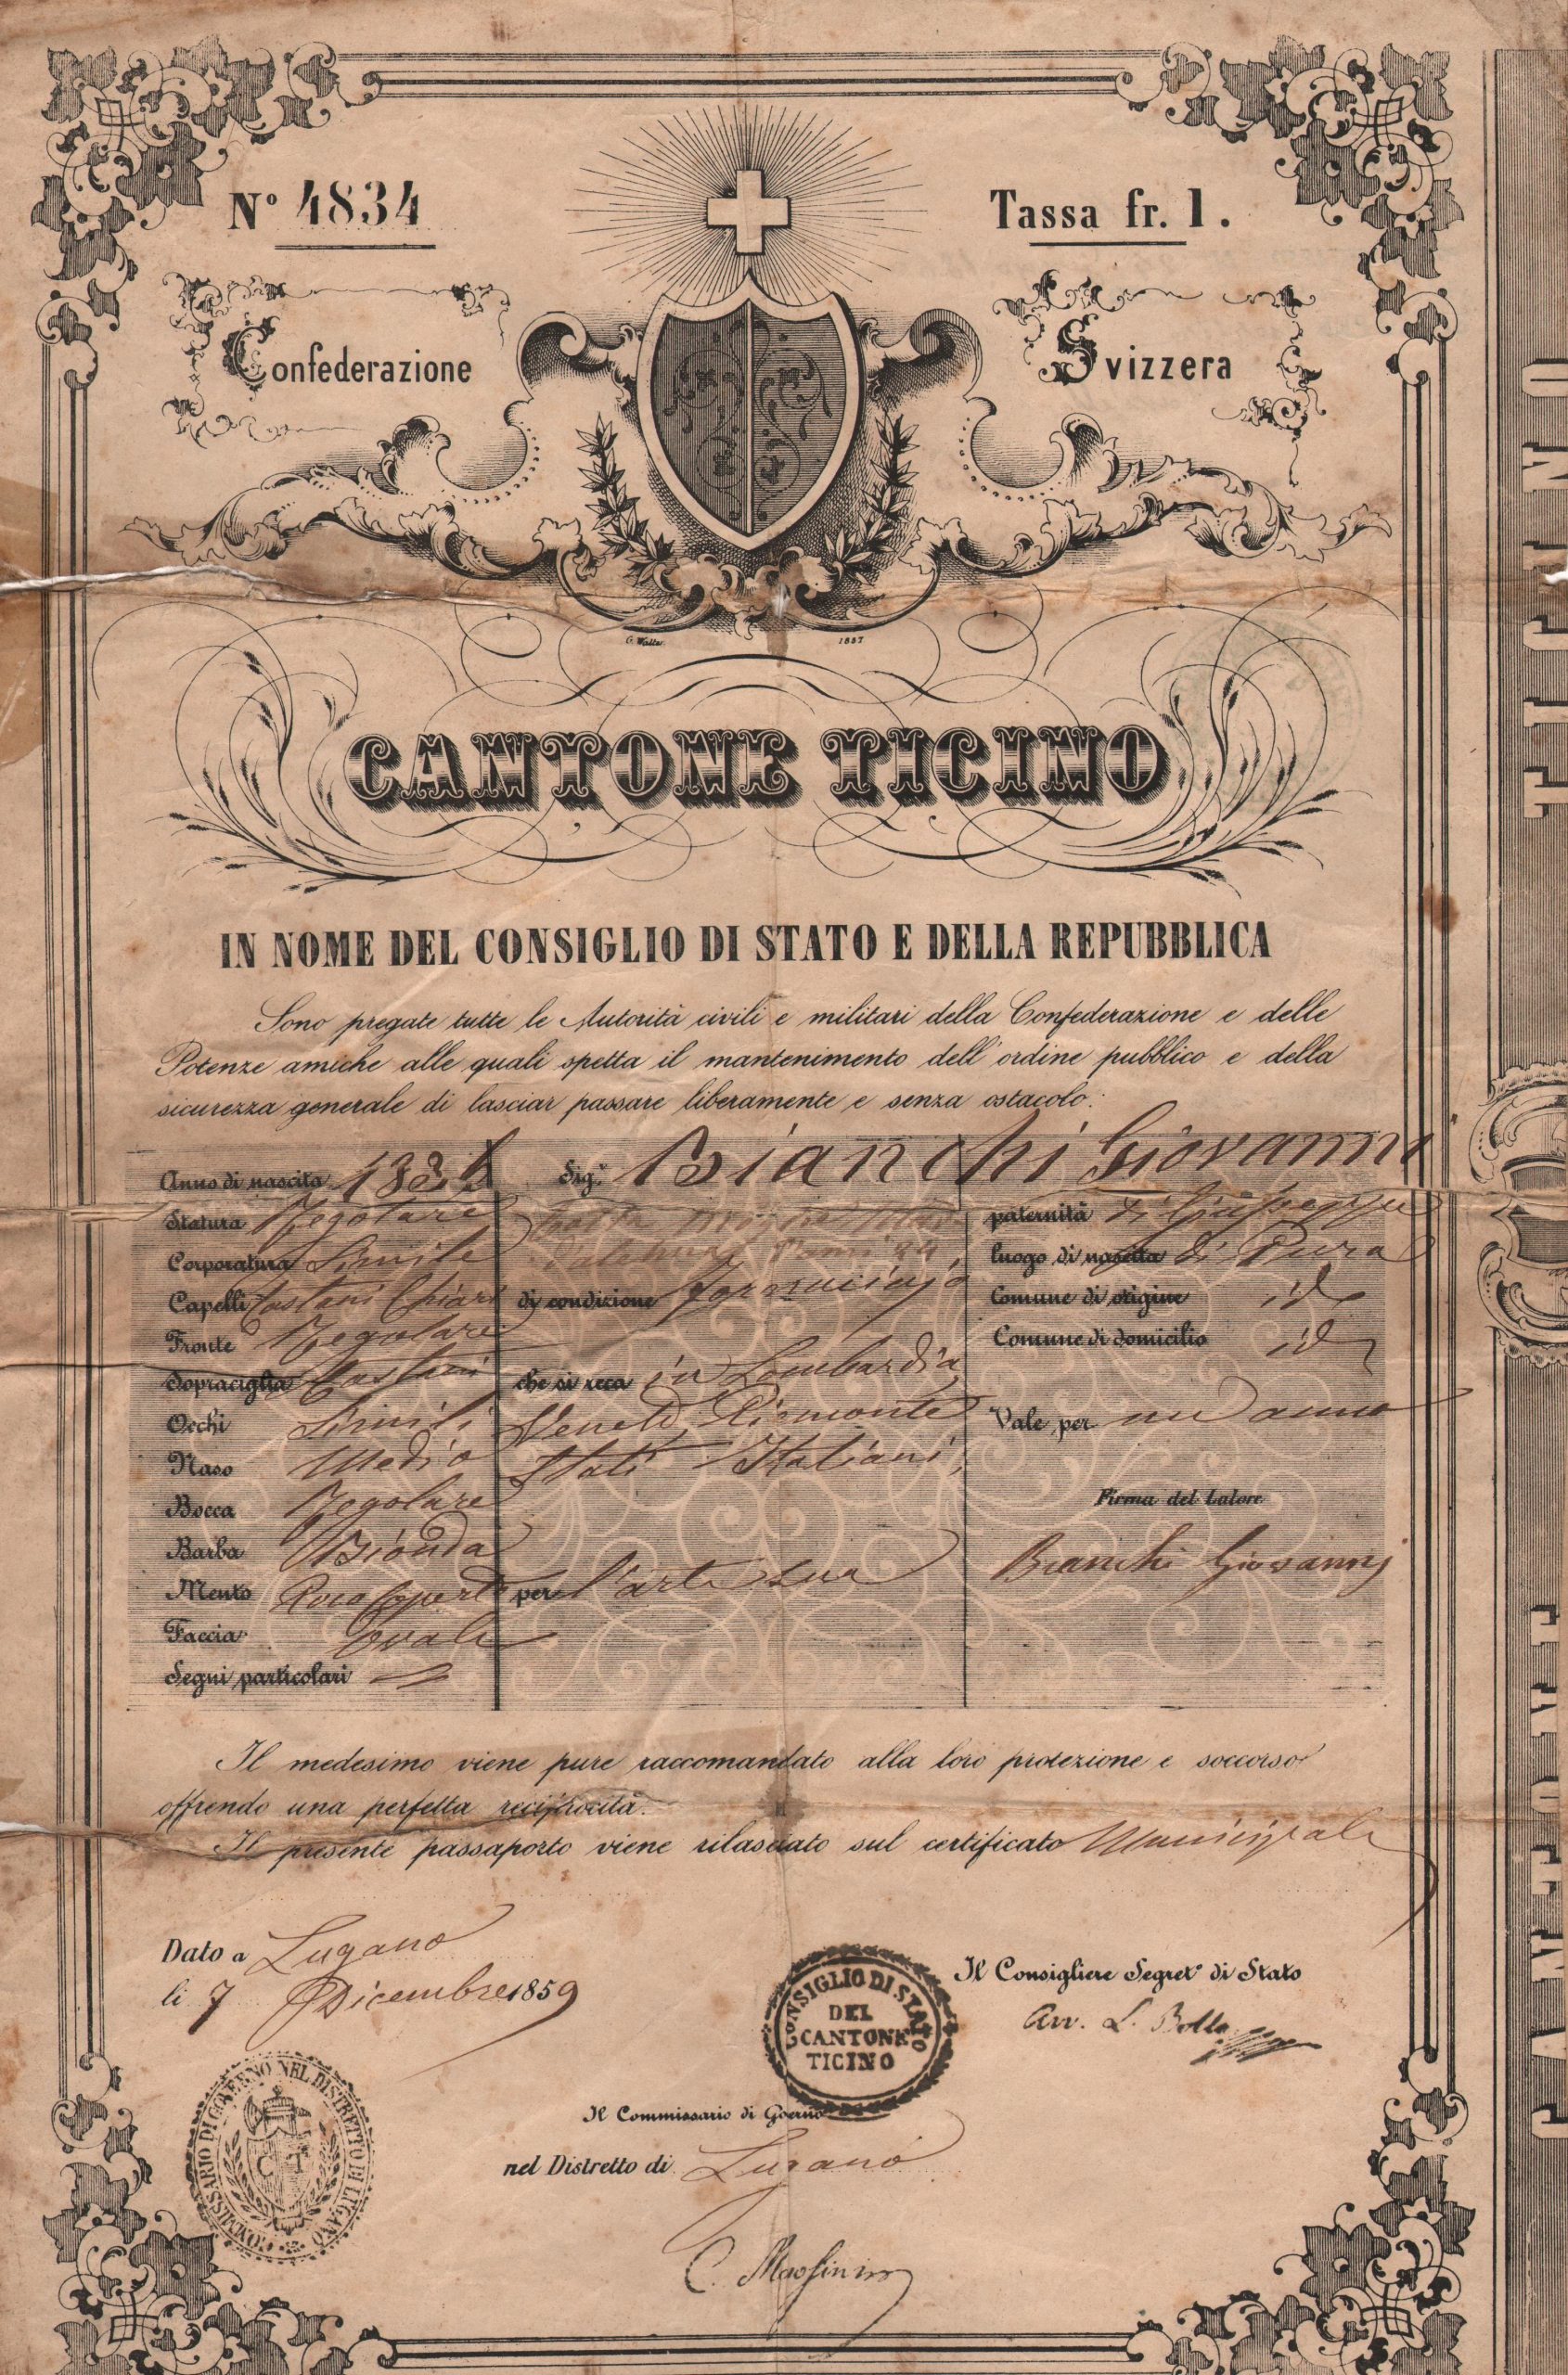 N.º 4834
Tassa fr. 1.
Confederazione Svizzera
G. Walter 1857
CANTONE TICINO
IN NOME DEL CONSIGLIO DI STATO E DELLA REPUBBLICA
Sono pregate tutte le Autorità civili e militari della Confederazione e delle
Potenze amiche alle quali spetta il mantenimento dell' ordine pubblico e della
sicurezza generale di lasciar passare liberamente e senza ostacolo:
Anno di nascita
Statura Regolare
Corporatura Simile
Capelli Castani Chiari
Fronte Regolare
Sopraciglia Castani
Occhi Simili
Naso Medio
Bocca Regolare
Barba Bionda
Mento
Faccia ovale
Segni particolari
Sig.r Bianchi Giovanni
di condizione Fornaciajo
che si reca in Lombardia
Veneto, Piemonte
Stati Italiani,
per l'arte sua
paternità di Giuseppe
luogo di nascita di Pura
Comune di origine id
Comune di domicilio id
Vale per un anno
Firma del Latore
Bianchi Giovanni
Il medesimo viene pure raccomandato alla loro protezione e soccorso
offrendo una perfetta reciprocità.
Il presente passaporto viene rilasciato sul certificato Municipale
Dato a Lugano
li 7 Dicembre 1859
CONSIGLIO DI STATO
DEL
CANTONE
TICINO
Il Consigliere Segret.º di Stato
Avv. L. Bolla
COMMISSARIO DI GOVERNO NEL DISTRETTO DI LUGANO
C T
Il Commissario di Governo
nel Distretto di Lugano
C.